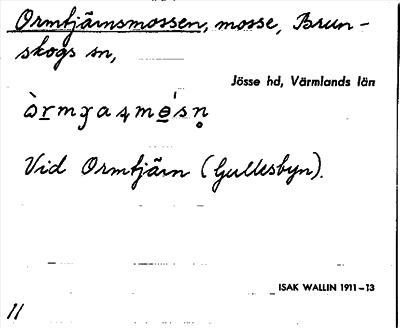 Ormtjärnsmossen, mosse, Brun-
skogs sn,
Jösse hd, Värmlands län
Vid Ormtjärn (Gullesbyn).
ISAK WALLIN 1911-13
11